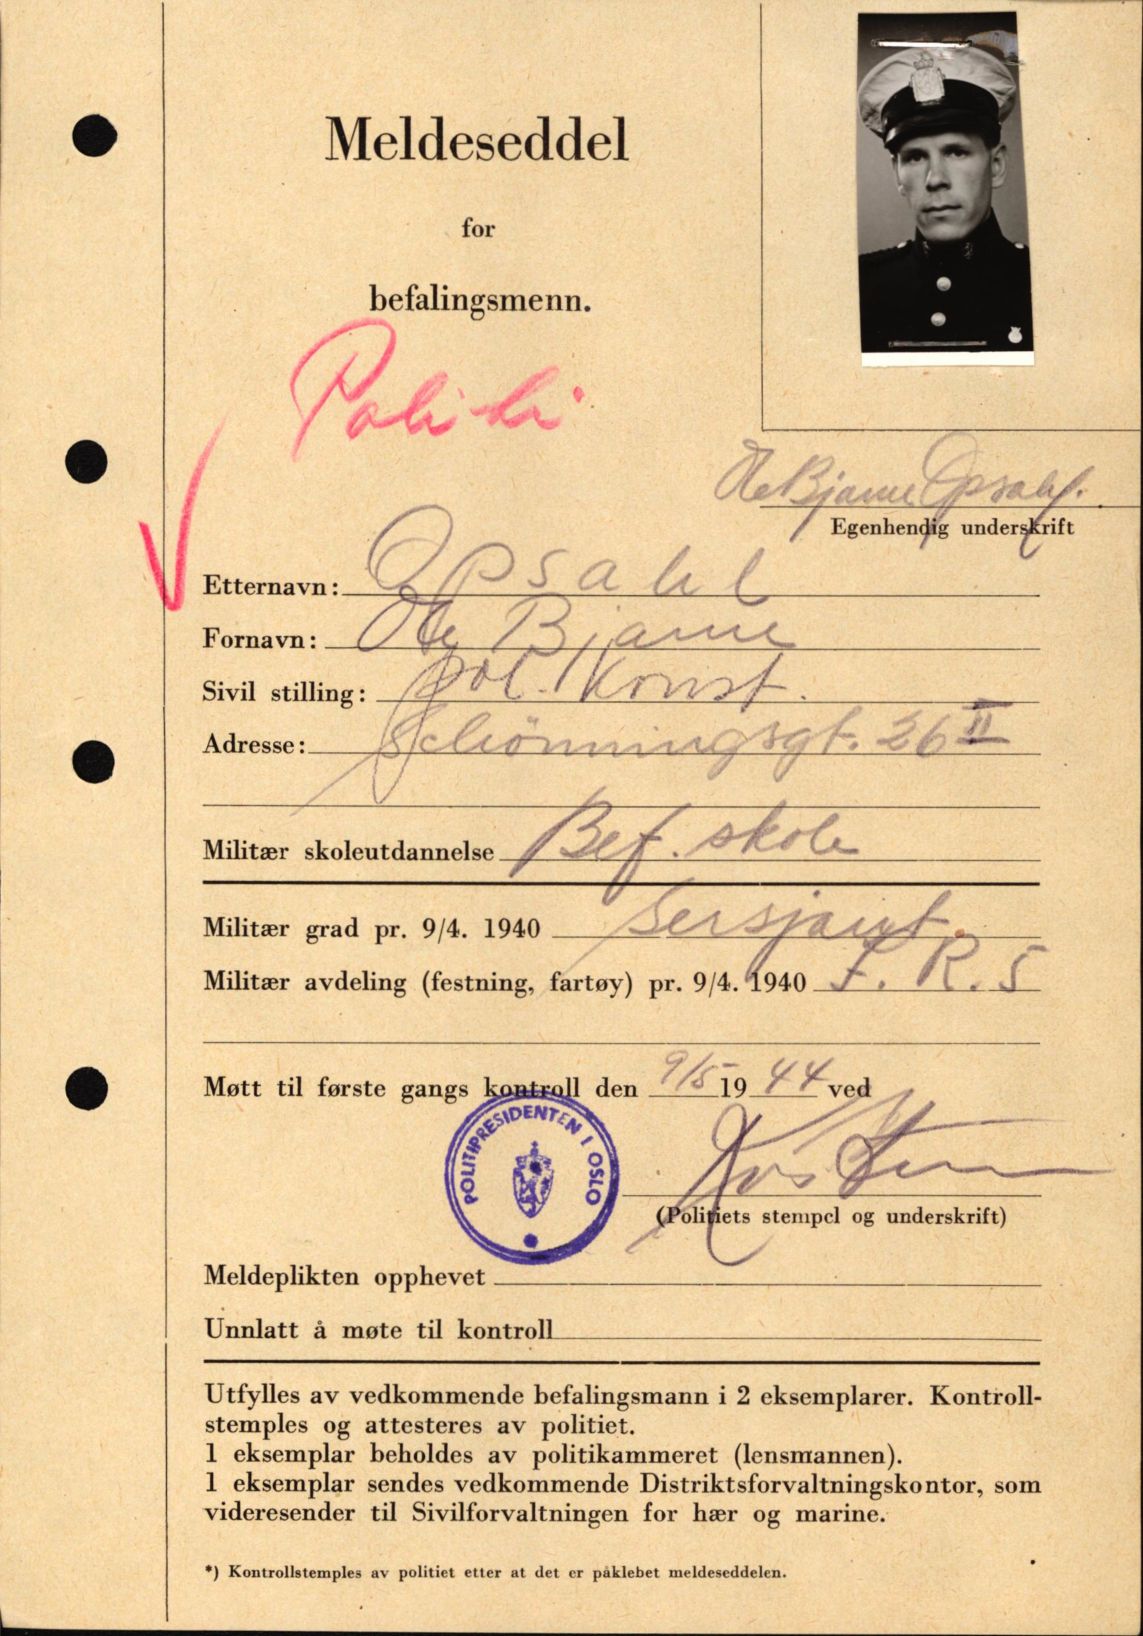 Meldeseddel
for
befalingsmenn.
Politi
Ole Bjarne Opsahl.
Egenhendig underskrift
Etternavn: Opsahl
Fornavn: Ole Bjarne
Sivil stilling: Pol. Konst.
Adresse: Schönningsgt. 26 II
Militær skoleutdannelse Bef. skole
Militær grad pr. 9/4. 1940 Sersjant.
Militær avdeling (festning, fartøy) pr. 9/4. 1940 I. R. 5
Møtt til første gangs kontroll den 9/5 19 44 ved
POLITIPRESIDENTEN I OSLO
(Politiets stempel og underskrift)
Meldeplikten opphevet
Unnlatt å møte til kontroll
Utfylles av vedkommende befalingsmann i 2 eksemplarer. Kontroll-
stemples og attesteres av politiet.
1 eksemplar beholdes av politikammeret (lensmannen).
1 eksemplar sendes vedkommende Distriktsforvaltningskontor, som
videresender til Sivilforvaltningen for hær og marine.
*) Kontrollstemples av politiet etter at det er påklebet meldeseddelen.